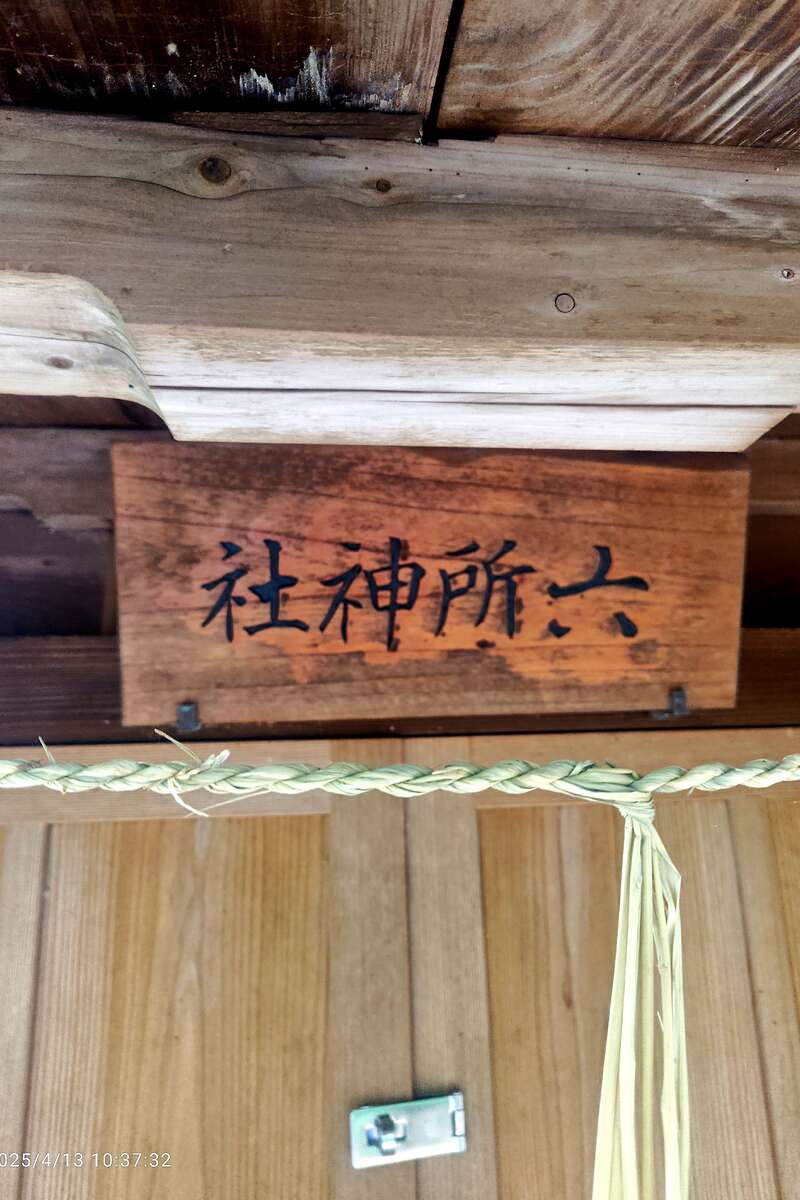 六所神社
025/4/13 10:37:32